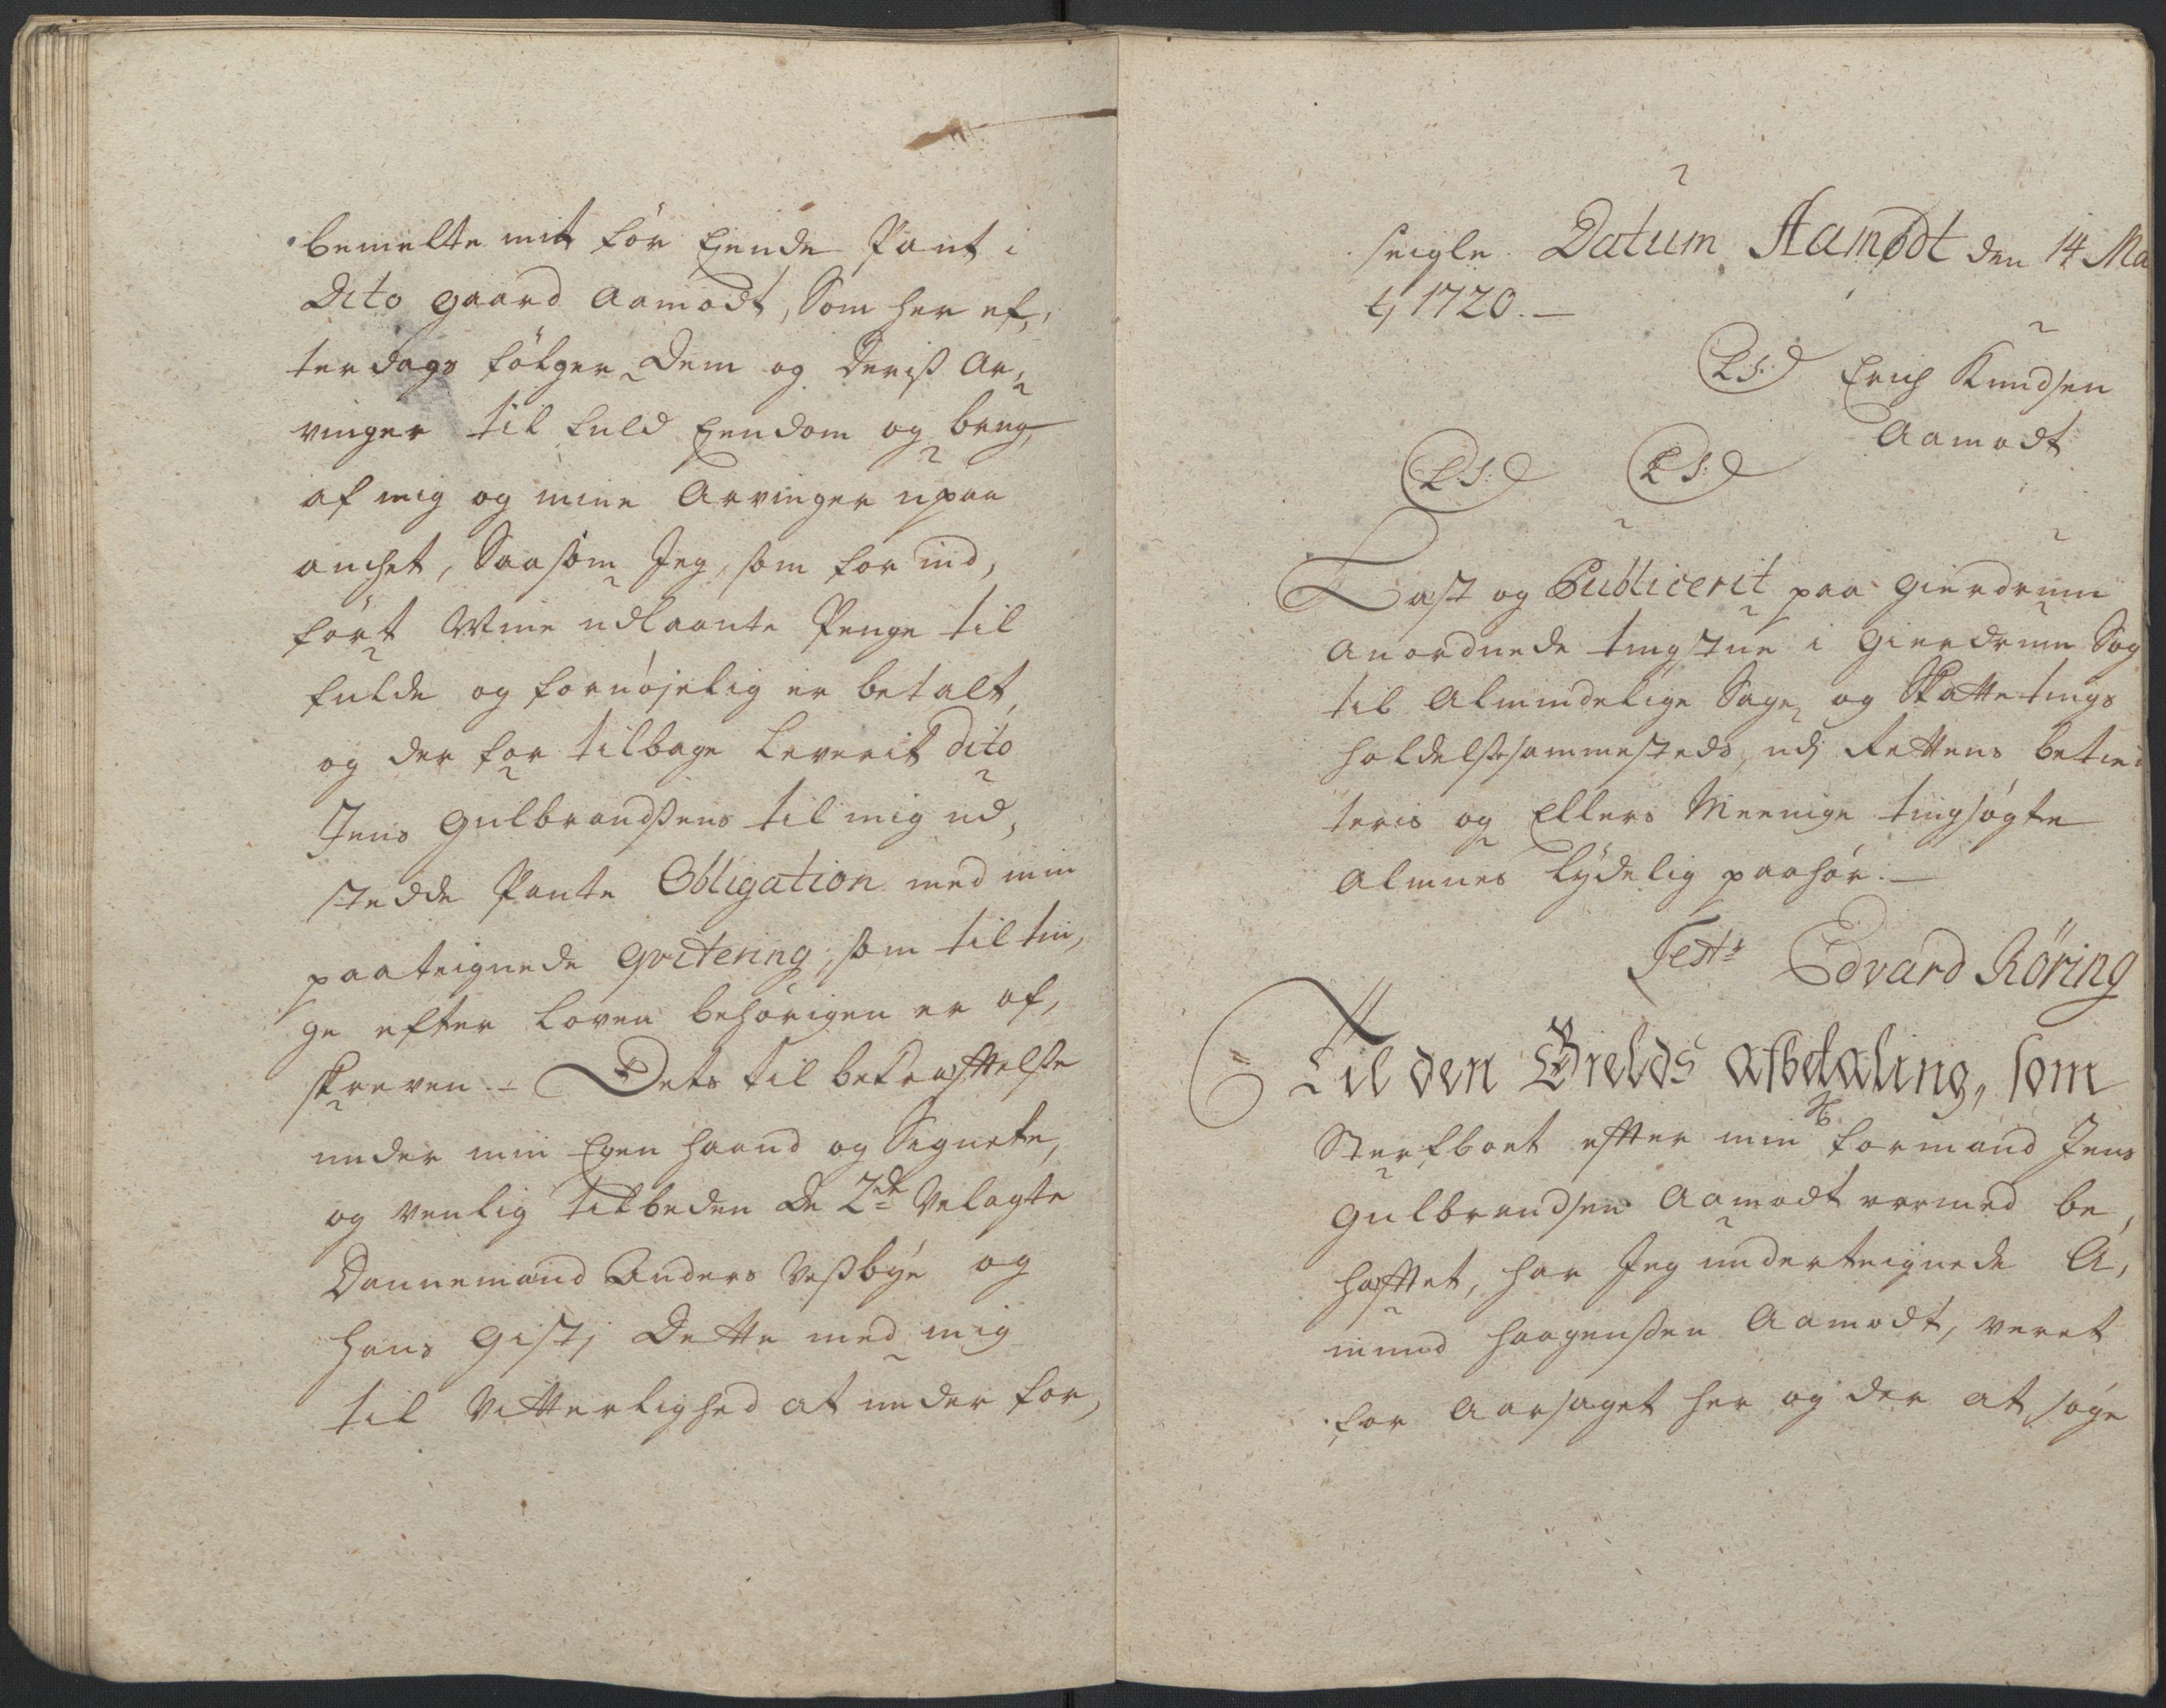 bemelte mit før Eyende Pant i
Dito gaard Aamodt, Som her ef,
ter dags følger Dem og Deriß Ar,
vinger til fuld Eyendom og brug,
af mig og mine Arvinger upaa
anchet, Saasom Jeg, som for ind,
ført mine udlaante Penge til
fulde og fornøjelig er betalt,
og der for tilbage leverit dito
Jens Gulbrandßens til mig ud,
stedde Pante Obligation med min
paateignede Qvitering, som til tin,
ge efter loven behørigen er af,
skreven. – Dets til bekræfftelße
under min Egen haand og Signete,
og venlig tilbeden De 2de Velagte
Dannemænd Anders Veßbye og
Hans Gistj Dette med mig
til Vitterlighed at under for,
seigle. Datum Aamodt den 14 Ma
tj 1720. –
L.S. Erich Knudsen
Aamodt
L.S. L.S.
Læst og Publicerit paa Gierdrum
anordnede tingstue i Gierdrum Sog
til Almindelige Sage og Skatte tings
holdelße sammesteds, udj Rettens betien
teris og Ellers Meenige tingsøgte
Almues lydelig paahør. –
Test: Edvard Röring
Til den Gields afbetaling, som
Sterfboet effter min formand Jens
Gulbrandsen Aamodt var med be,
hefftet, har Jeg underteignede A,
mund Haagenßen Aamodt, veret
for Aarsaget her og der at søge